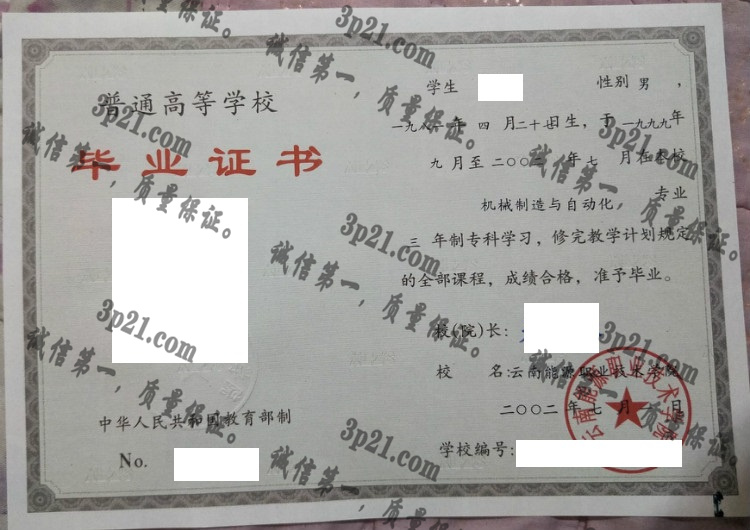 普通高等学校
毕业证书
中华人民共和国教育部制
No.
学生 性别 男 ,
一九八一年 四 月 二十七日生, 于 一九九九年
九 月至 二〇〇二 年 七 月在本校
机械制造与自动化, 专业
三 年制专科学习, 修完教学计划规定
的全部课程, 成绩合格, 准予毕业。
校(院)长:
校 名:云南能源职业技术学院
二〇〇二 年 七 月 日
学校编号:
云南能源职业技术学院
3p21.com
诚信第一,质量保证。
3p21.com
诚信第一,质量保证。
3p21.com
诚信第一,质量保证。
3p21.com
诚信第一,质量保证。
3p21.com
诚信第一,质量保证。
3p21.com
诚信第一,质量保证。
3p21.com
诚信第一,质量保证。